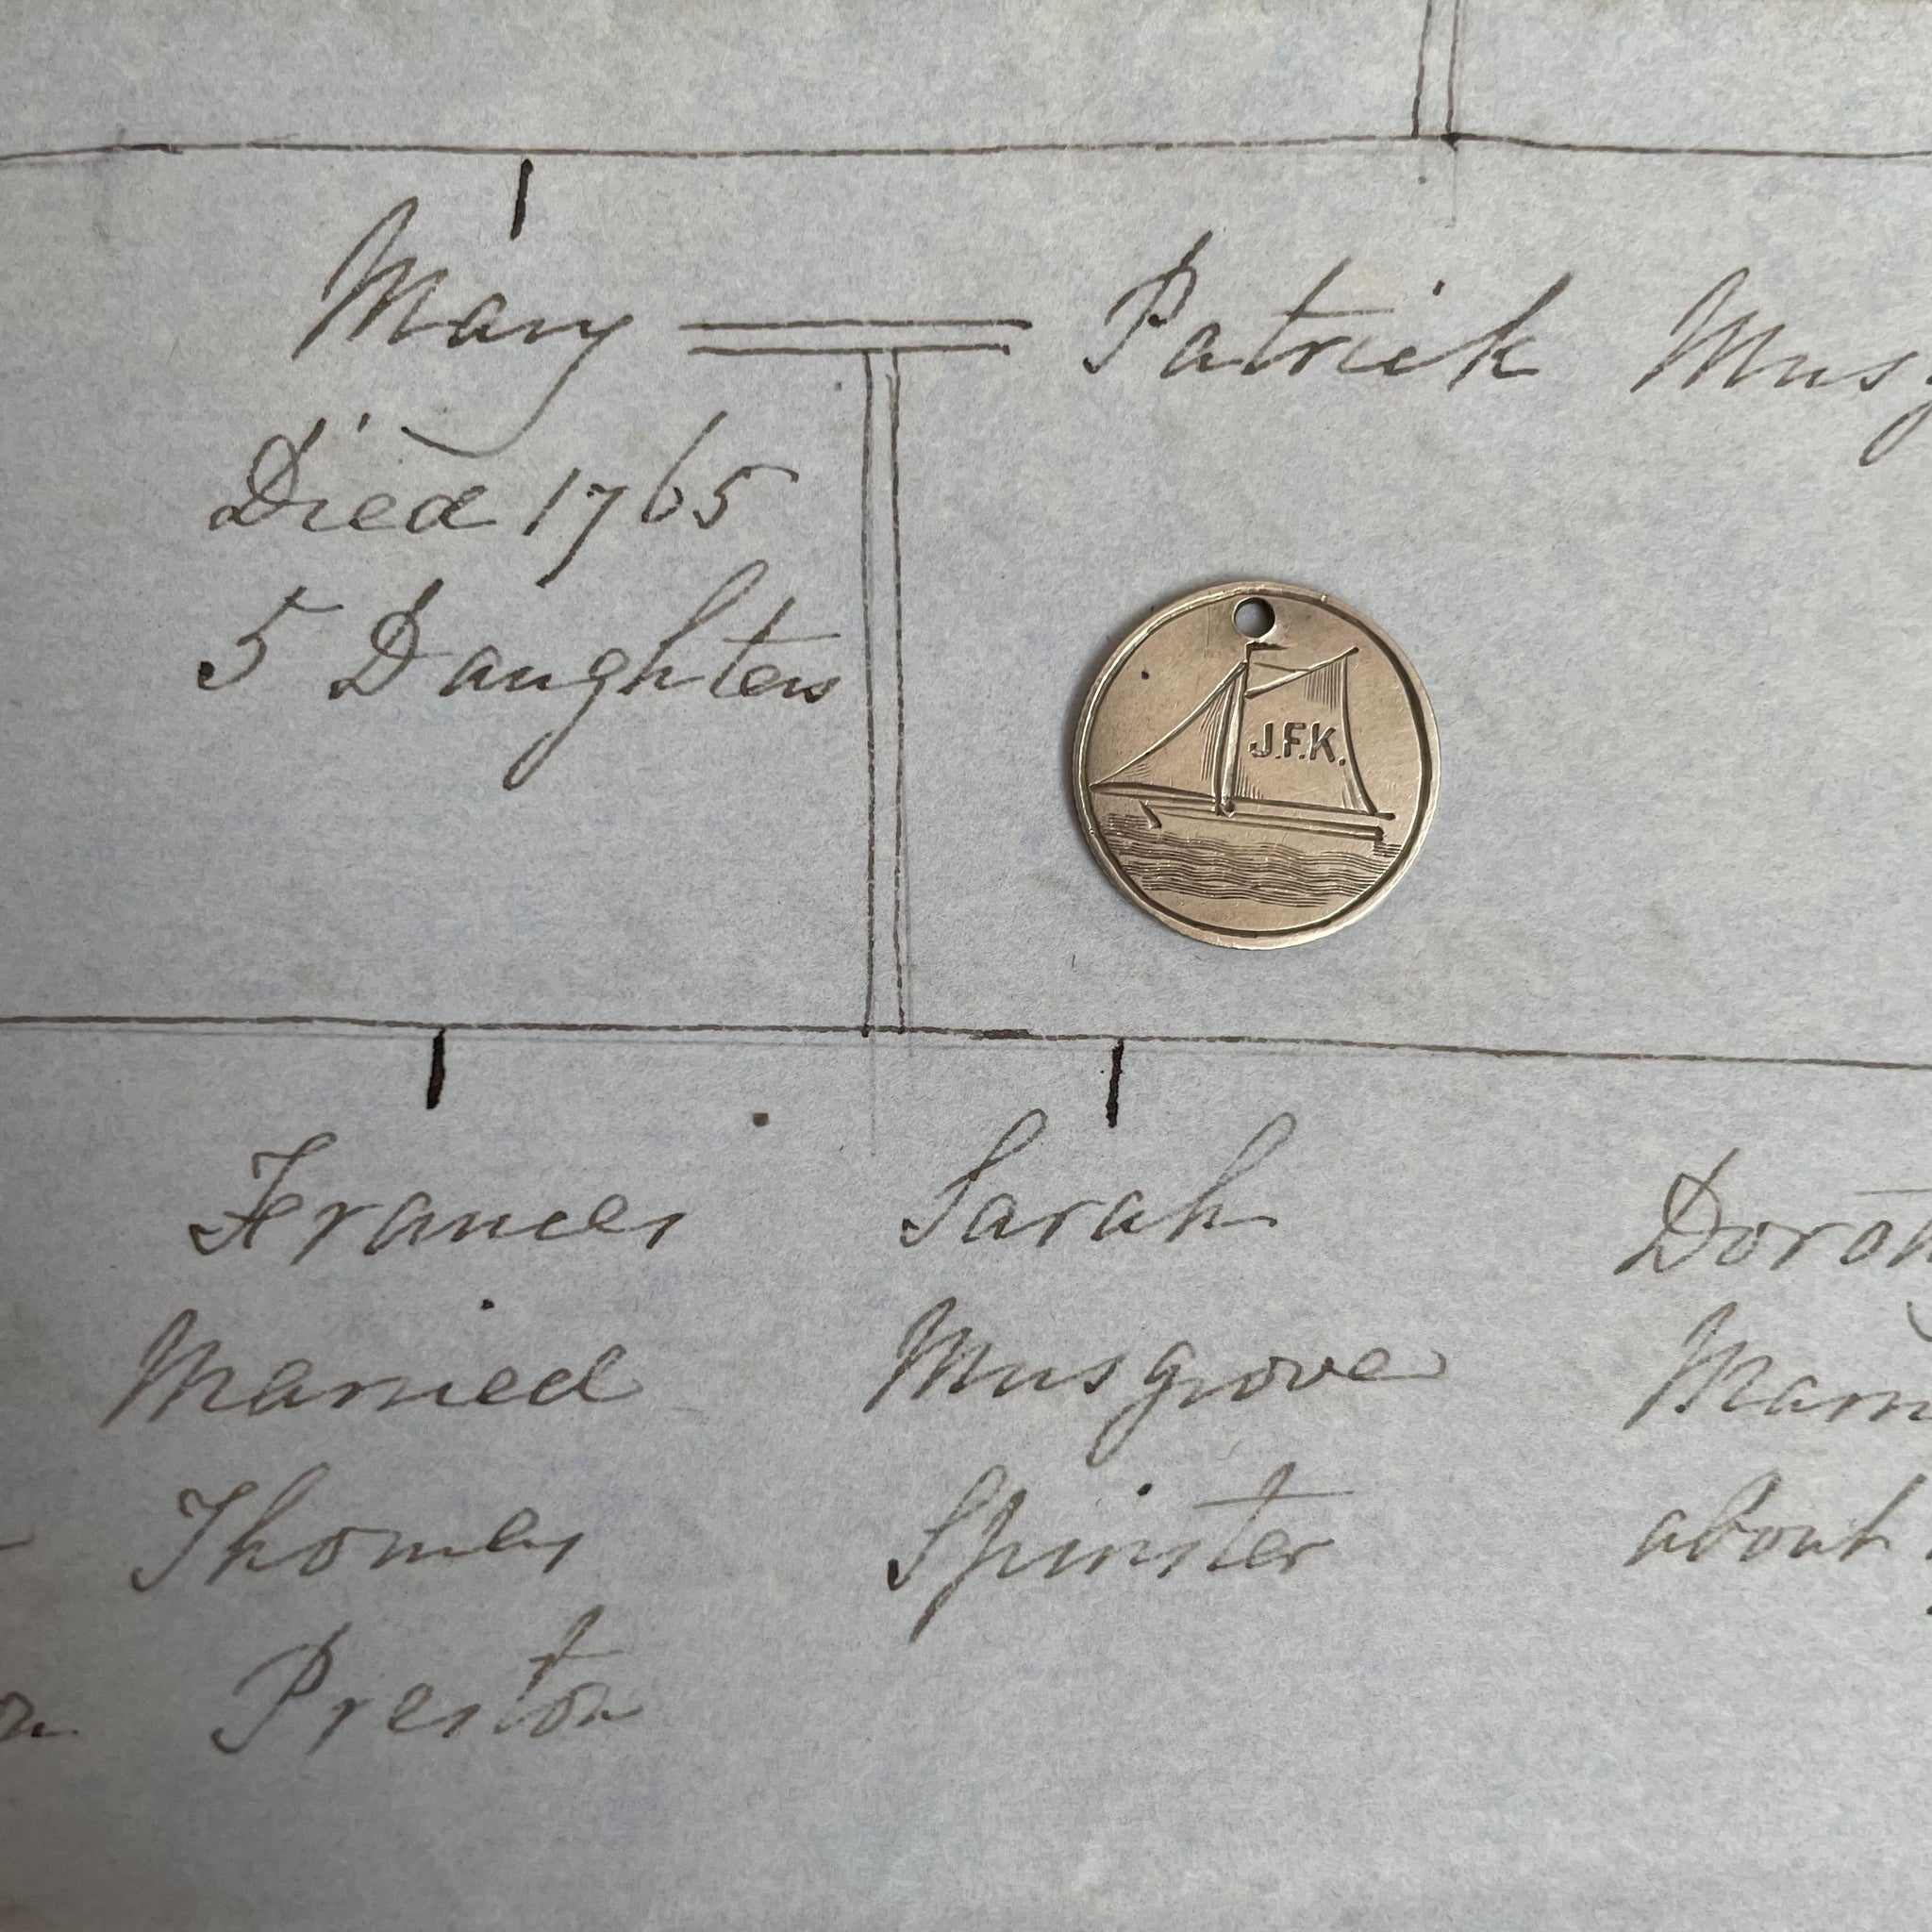 Mary Patrick
Died 1765
5 Daughters
J.F.K.
Frances Sarah
Married Musgrove
Thomas Spinster about
Preston